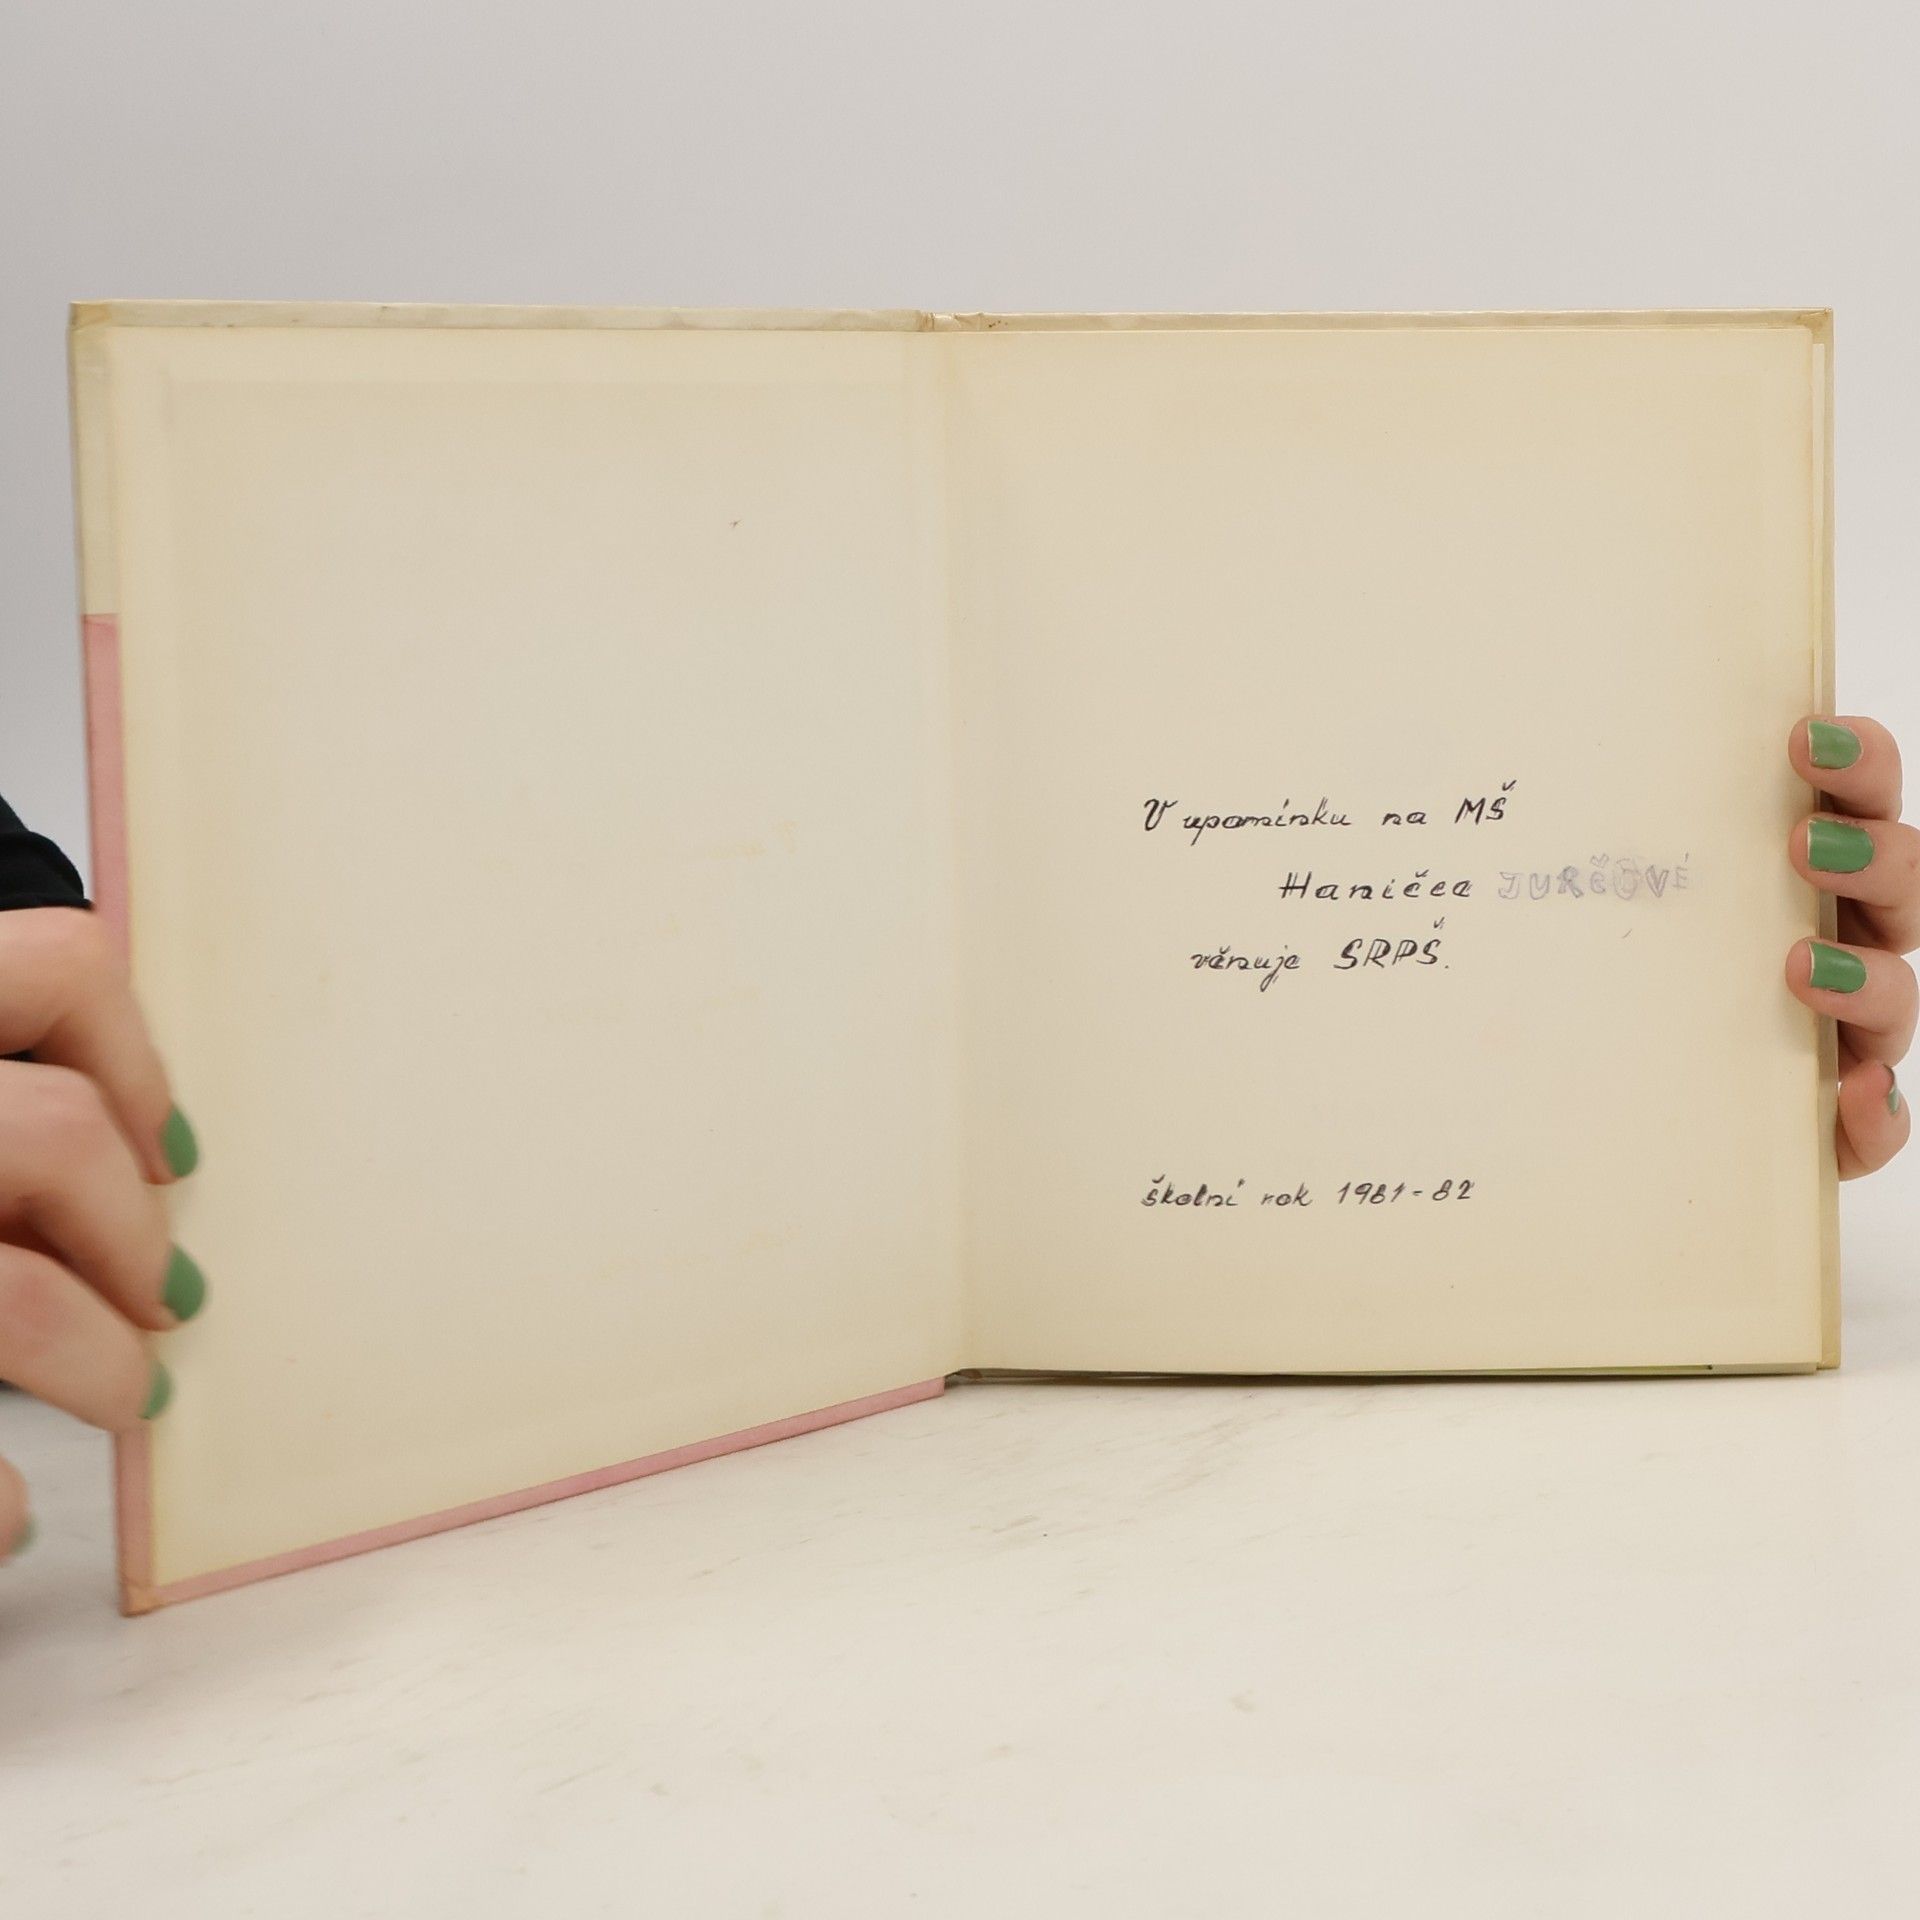 V upomínku na MŠ
Haničce JURČOVÉ
věnuje SRPŠ.
školní rok 1981-82